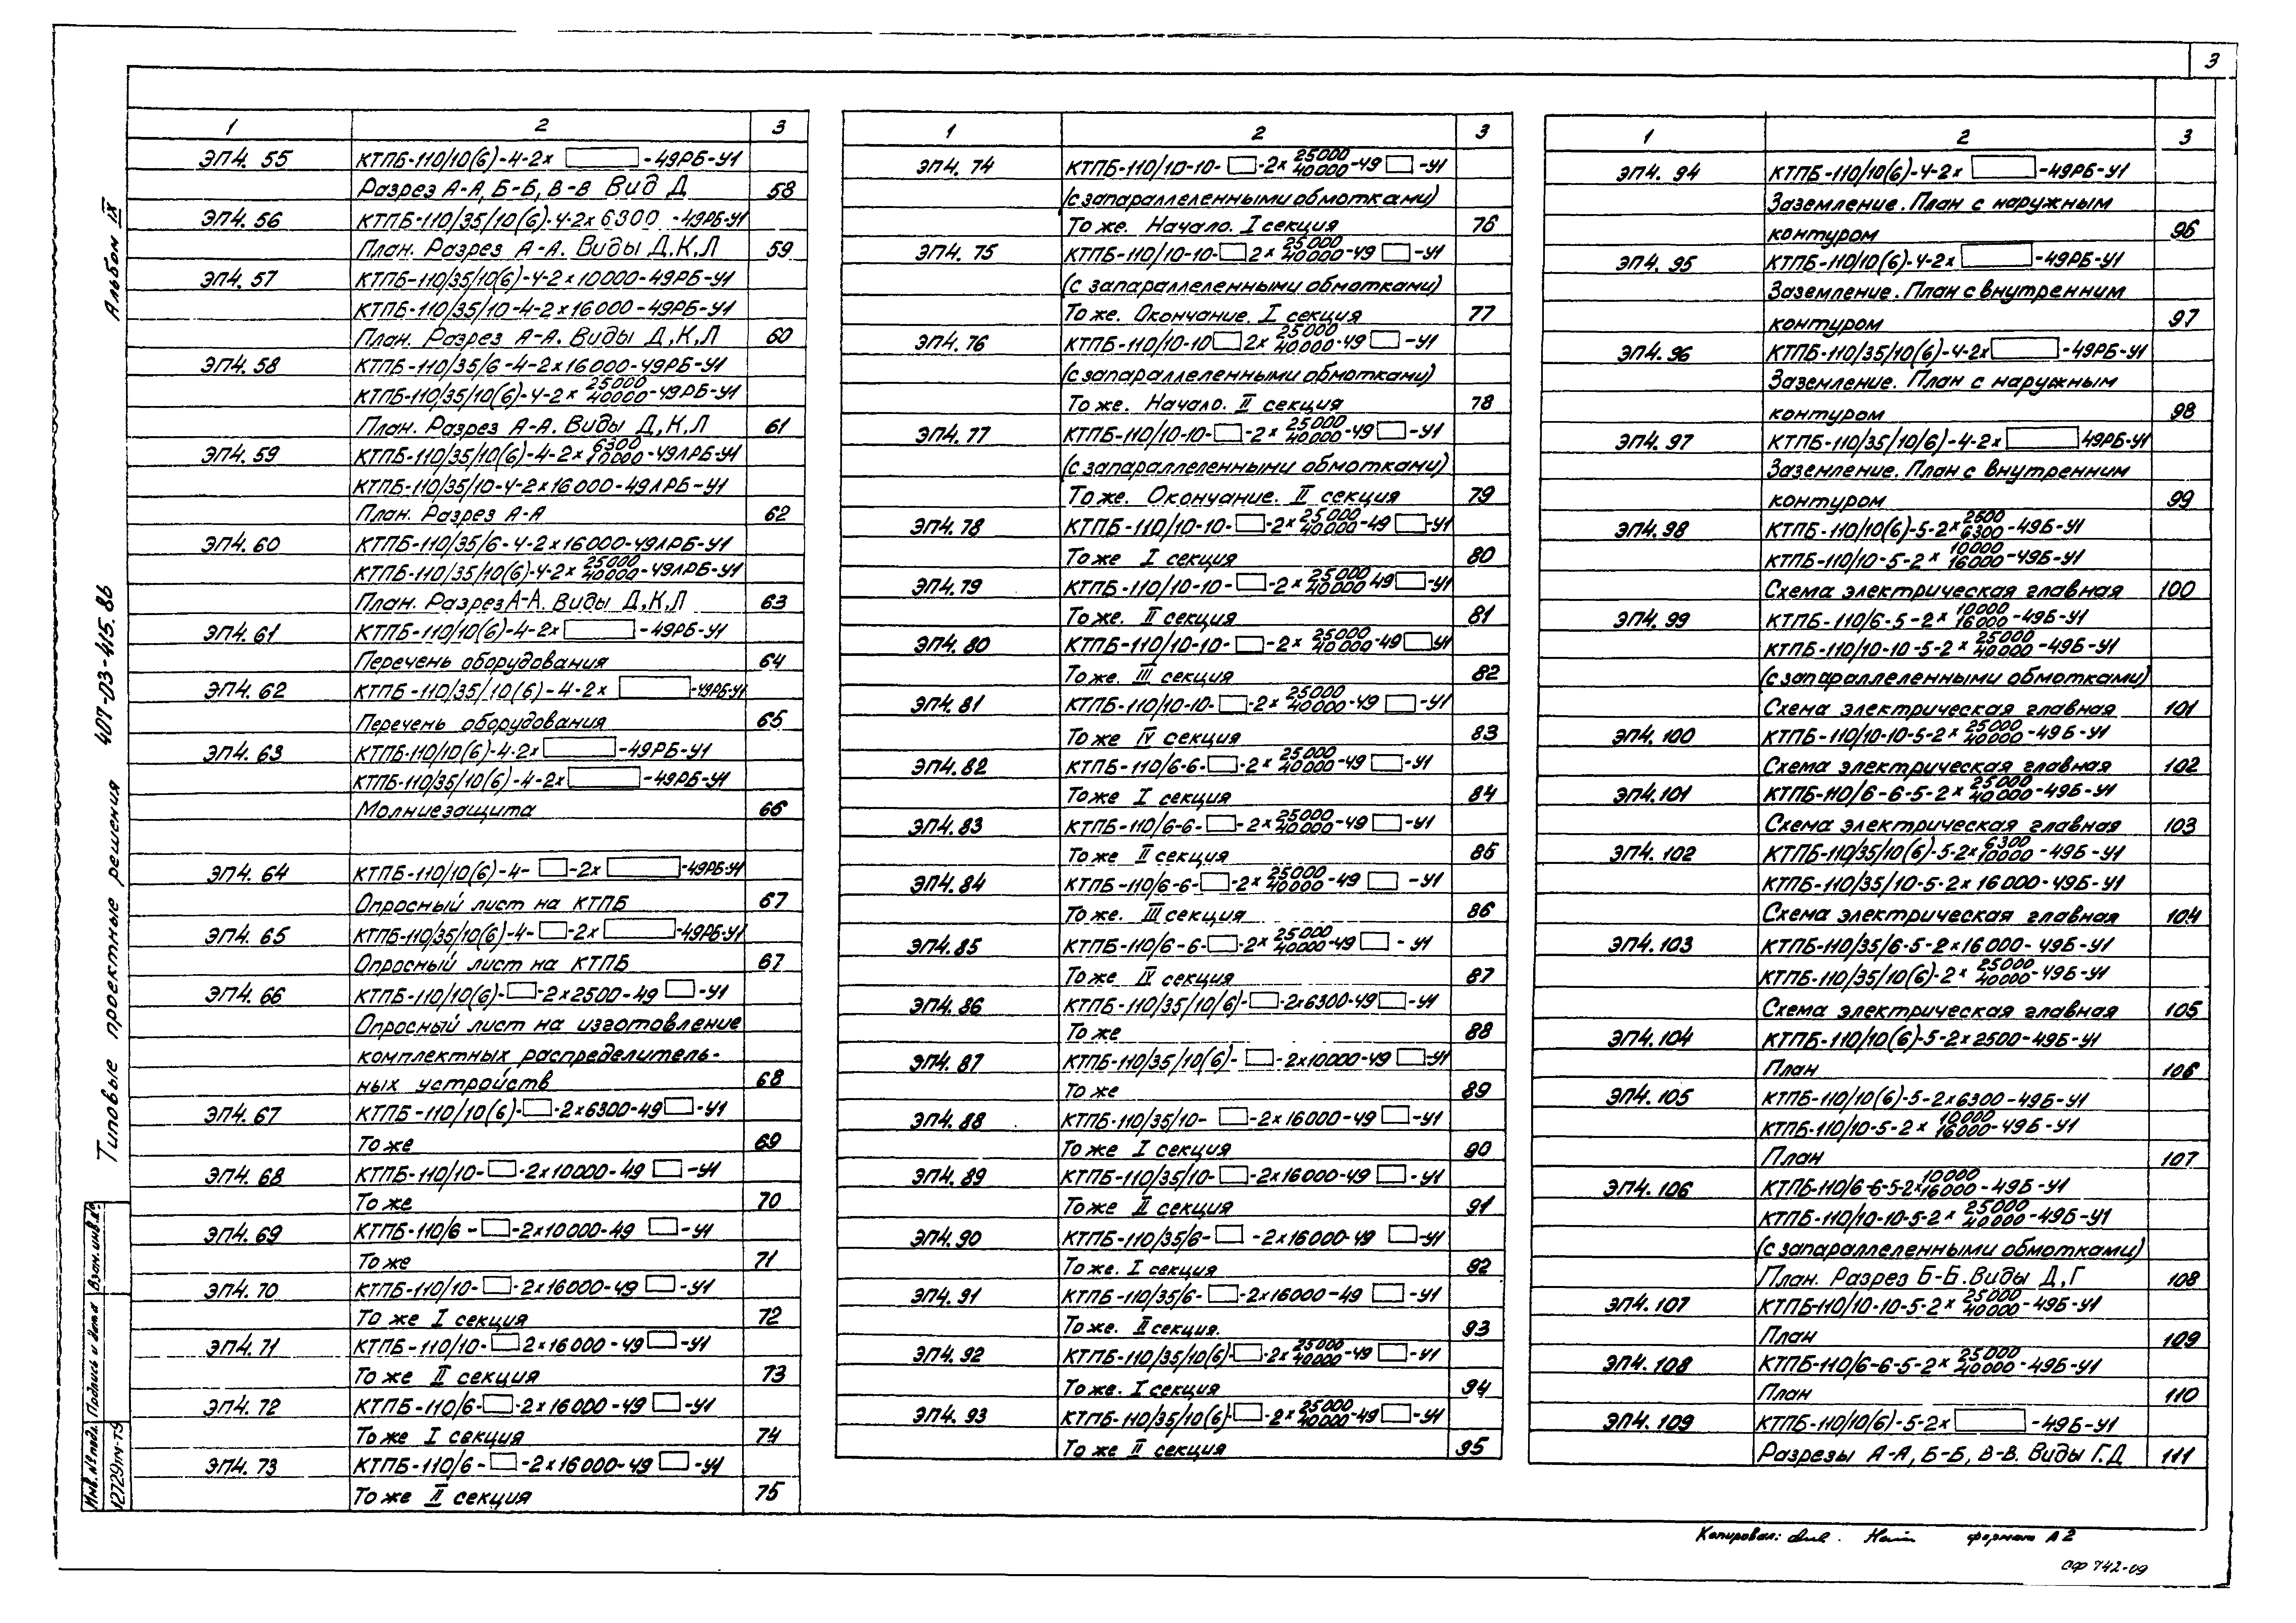 3
Альбом IX
Типовые проектные решения 407-03-415.86
Взам. инв. №
Подпись и дата
Инв. № подл.
12729тм-т9
1 2 3
ЭП4. 55 КТПБ-110/10(6)-4-2х □ -49РБ-У1
Разрез А-А, Б-Б, В-В Вид Д 58
ЭП4. 56 КТПБ-110/35/10(6)-4-2х6300-49РБ-У1
План. Разрез А-А. Виды Д,К,Л 59
ЭП4. 57 КТПБ-110/35/10(6)-4-2х10000-49РБ-У1
КТПБ-110/35/10-4-2х16000-49РБ-У1
План. Разрез А-А. Виды Д,К,Л 60
ЭП4. 58 КТПБ-110/35/6-4-2х16000-49РБ-У1
КТПБ-110/35/10(6)-4-2х 25000/40000-49РБ-У1
План. Разрез А-А. Виды Д,К,Л 61
ЭП4. 59 КТПБ-110/35/10(6)-4-2х 6300/10000-49ЛРБ-У1
КТПБ-110/35/10-4-2х16000-49ЛРБ-У1
План. Разрез А-А 62
ЭП4. 60 КТПБ-110/35/6-4-2х16000-49ЛРБ-У1
КТПБ-110/35/10(6)-4-2х 25000/40000-49ЛРБ-У1
План. Разрез А-А. Виды Д,К,Л 63
ЭП4. 61 КТПБ-110/10(6)-4-2х □ -49РБ-У1
Перечень оборудования 64
ЭП4. 62 КТПБ-110/35/10(6)-4-2х □ -49РБ-У1
Перечень оборудования 65
ЭП4. 63 КТПБ-110/10(6)-4-2х □ -49РБ-У1
КТПБ-110/35/10(6)-4-2х □ -49РБ-У1
Молниезащита 66
ЭП4. 64 КТПБ-110/10(6)-4- □ -2х □ -49РБ-У1
Опросный лист на КТПБ 67
ЭП4. 65 КТПБ-110/35/10(6)-4- □ -2х □ -49РБ-У1
Опросный лист на КТПБ 67
ЭП4. 66 КТПБ-110/10(6)- □ -2х2500-49 □ -У1
Опросный лист на изготовление
комплектных распределитель-
ных устройств 68
ЭП4. 67 КТПБ-110/10(6)- □ -2х6300-49 □ -У1
То же 69
ЭП4. 68 КТПБ-110/10- □ -2х10000-49 □ -У1
То же 70
ЭП4. 69 КТПБ-110/6- □ -2х10000-49 □ -У1
То же 71
ЭП4. 70 КТПБ-110/10- □ -2х16000-49 □ -У1
То же I секция 72
ЭП4. 71 КТПБ-110/10- □ 2х16000-49 □ -У1
То же II секция 73
ЭП4. 72 КТПБ-110/6- □ -2х16000-49 □ -У1
То же I секция 74
ЭП4. 73 КТПБ-110/6- □ -2х16000-49 □ -У1
То же II секция 75
1 2 3
ЭП4. 74 КТПБ-110/10-10- □ -2х 25000/40000-49 □ -У1
(с запараллеленными обмотками)
То же. Начало. I секция 76
ЭП4. 75 КТПБ-110/10-10- □ 2х 25000/40000-49 □ -У1
(с запараллеленными обмотками)
То же. Окончание. I секция 77
ЭП4. 76 КТПБ-110/10-10 □ 2х 25000/40000-49 □ -У1
(с запараллеленными обмотками)
То же. Начало. II секция 78
ЭП4. 77 КТПБ-110/10-10- □ -2х 25000/40000-49 □ -У1
(с запараллеленными обмотками)
То же. Окончание. II секция 79
ЭП4. 78 КТПБ-110/10-10- □ -2х 25000/40000-49 □ -У1
То же I секция 80
ЭП4. 79 КТПБ-110/10-10- □ -2х 25000/40000 49 □ -У1
То же. II секция 81
ЭП4. 80 КТПБ-110/10-10- □ -2х 25000/40000-49 □ У1
То же. III секция 82
ЭП4. 81 КТПБ-110/10-10- □ -2х 25000/40000-49 □ -У1
То же IV секция 83
ЭП4. 82 КТПБ-110/6-6- □ -2х 25000/40000-49 □ -У1
То же I секция 84
ЭП4. 83 КТПБ-110/6-6- □ -2х 25000/40000-49 □ -У1
То же II секция 85
ЭП4. 84 КТПБ-110/6-6- □ -2х 25000/40000-49 □ -У1
То же. III секция 86
ЭП4. 85 КТПБ-110/6-6- □ -2х 25000/40000-49 □ -У1
То же IV секция 87
ЭП4. 86 КТПБ-110/35/10/6)- □ -2х6300-49 □ -У1
То же 88
ЭП4. 87 КТПБ-110/35/10(6)- □ -2х10000-49 □ -У1
То же 89
ЭП4. 88 КТПБ-110/35/10- □ -2х16000-49 □ -У1
То же I секция 90
ЭП4. 89 КТПБ-110/35/10- □ -2х16000-49 □ -У1
То же II секция 91
ЭП4. 90 КТПБ-110/35/6- □ -2х16000-49 □ -У1
То же. I секция 92
ЭП4. 91 КТПБ-110/35/6- □ -2х16000-49 □ -У1
То же. II секция. 93
ЭП4. 92 КТПБ-110/35/10(6)- □ -2х 25000/40000-49 □ -У1
То же. I секция 94
ЭП4. 93 КТПБ-110/35/10(6)- □ -2х 25000/40000-49 □ -У1
То же II секция 95
1 2 3
ЭП4. 94 КТПБ-110/10(6)-4-2х □ -49РБ-У1
Заземление. План с наружным
контуром 96
ЭП4. 95 КТПБ-110/10(6)-4-2х □ -49РБ-У1
Заземление. План с внутренним
контуром 97
ЭП4. 96 КТПБ-110/35/10(6)-4-2х □ -49РБ-У1
Заземление. План с наружным
контуром 98
ЭП4. 97 КТПБ-110/35/10/6)-4-2х □ 49РБ-У1
Заземление. План с внутренним
контуром 99
ЭП4. 98 КТПБ-110/10(6)-5-2х 2500/6300-49Б-У1
КТПБ-110/10-5-2х 10000/16000-49Б-У1
Схема электрическая главная 100
ЭП4. 99 КТПБ-110/6-5-2х 10000/16000-49Б-У1
КТПБ-110/10-10-5-2х 25000/40000-49Б-У1
(с запараллеленными обмотками)
Схема электрическая главная 101
ЭП4. 100 КТПБ-110/10-10-5-2х 25000/40000-49Б-У1
Схема электрическая главная 102
ЭП4. 101 КТПБ-110/6-6-5-2х 25000/40000-49Б-У1
Схема электрическая главная 103
ЭП4. 102 КТПБ-110/35/10(6)-5-2х 6300/10000-49Б-У1
КТПБ-110/35/10-5-2х16000-49Б-У1
Схема электрическая главная 104
ЭП4. 103 КТПБ-110/35/6-5-2х16000-49Б-У1
КТПБ-110/35/10(6)-2х 25000/40000-49Б-У1
Схема электрическая главная 105
ЭП4. 104 КТПБ-110/10(6)-5-2х2500-49Б-У1
План 106
ЭП4. 105 КТПБ-110/10(6)-5-2х6300-49Б-У1
КТПБ-110/10-5-2х 10000/16000-49Б-У1
План 107
ЭП4. 106 КТПБ-110/6-6-5-2х 10000/16000-49Б-У1
КТПБ-110/10-10-5-2х 25000/40000-49Б-У1
(с запараллеленными обмотками)
План. Разрез Б-Б. Виды Д,Г 108
ЭП4. 107 КТПБ-110/10-10-5-2х 25000/40000-49Б-У1
План 109
ЭП4. 108 КТПБ-110/6-6-5-2х 25000/40000-49Б-У1
План 110
ЭП4. 109 КТПБ-110/10(6)-5-2х □ -49Б-У1
Разрезы А-А, Б-Б, В-В. Виды Г.Д 111
Копировал: формат А2
СФ 742-09